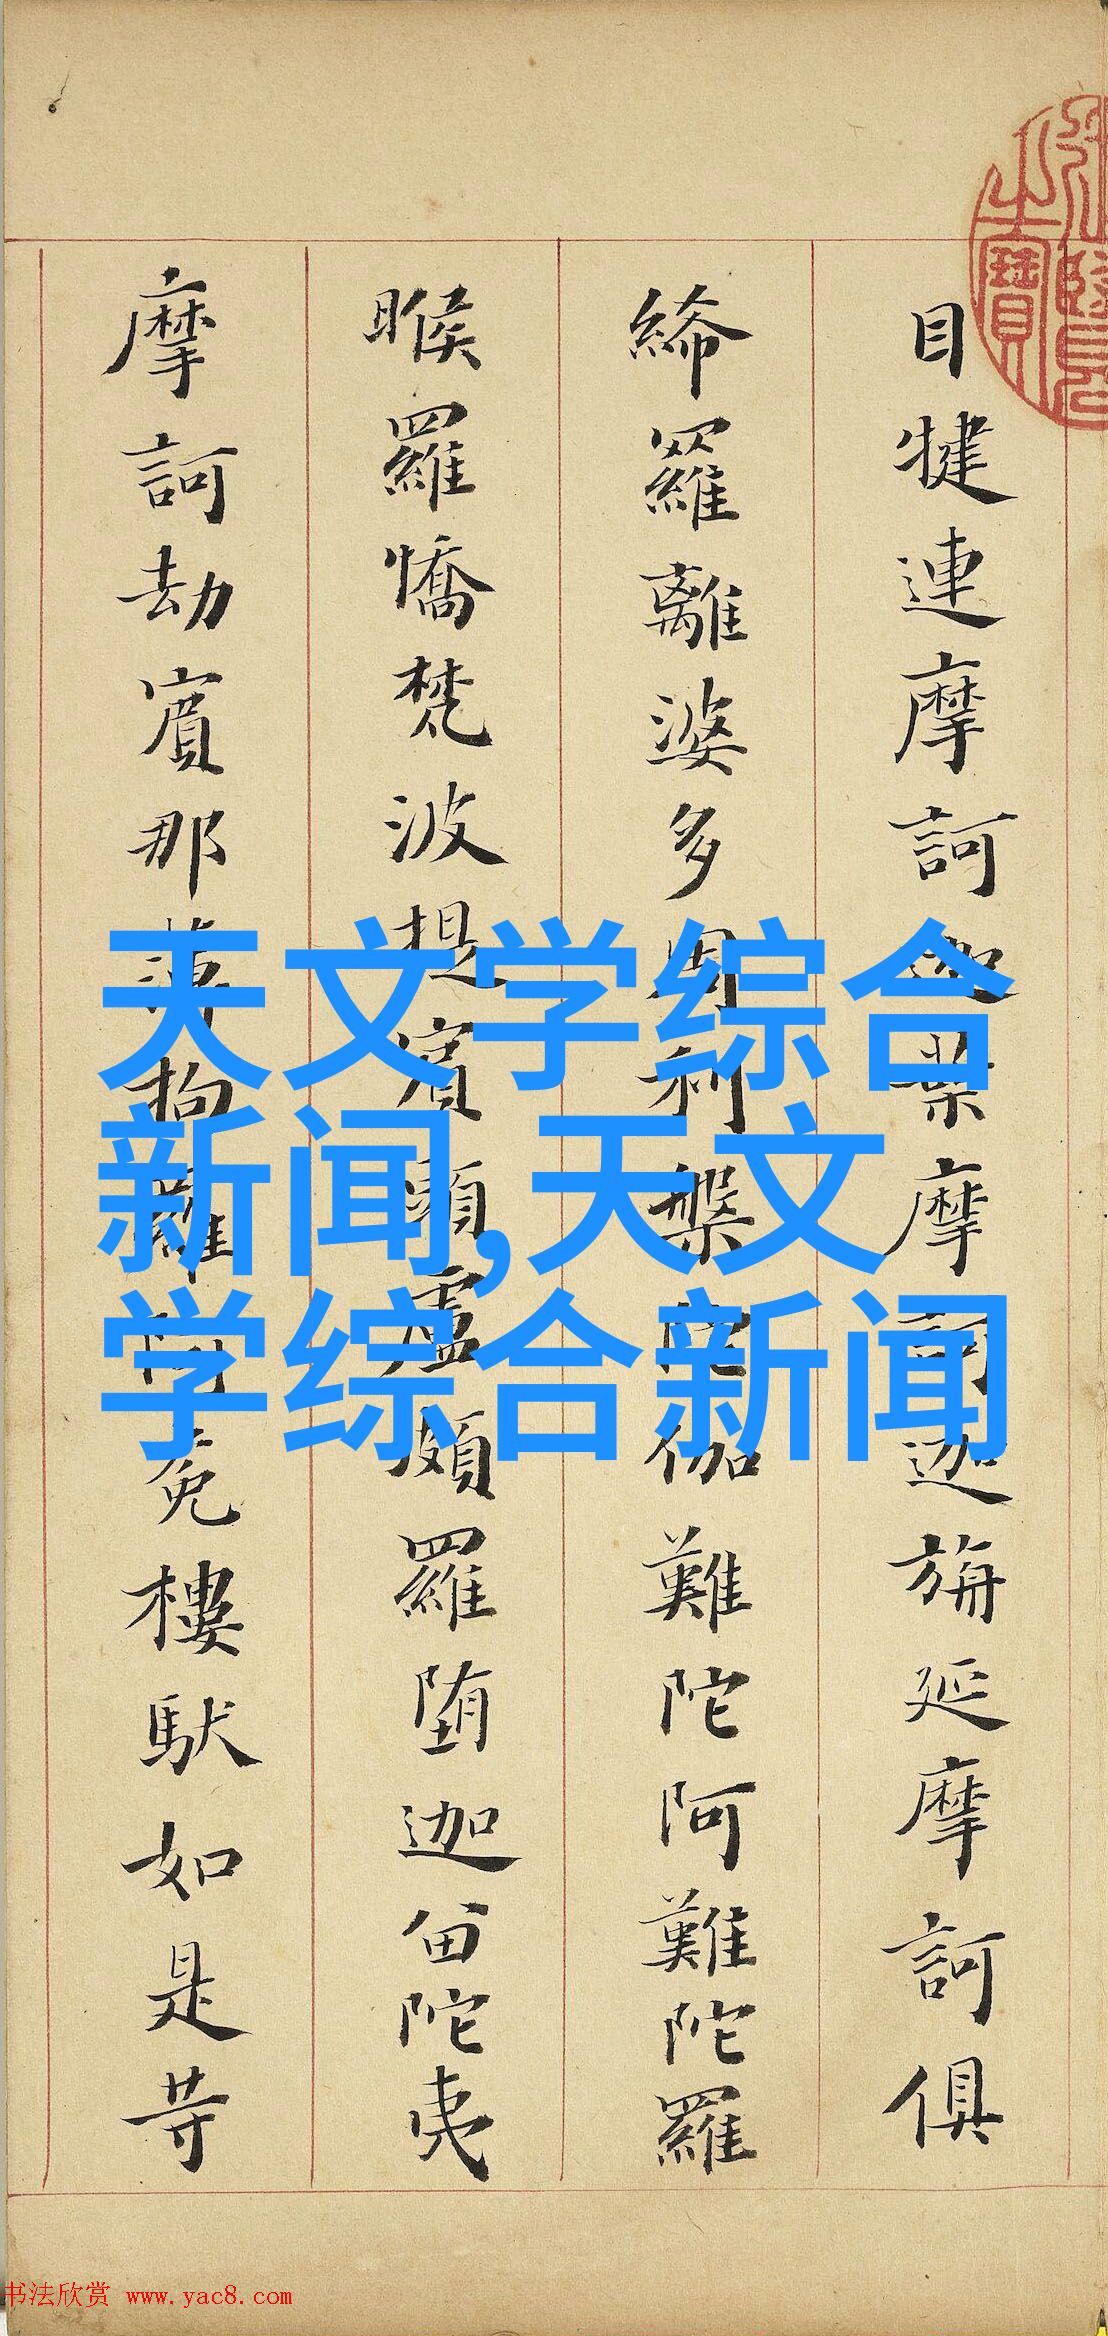 目犍連摩訶迦葉摩訶迦旃延摩訶俱
絺羅離婆多周利槃陀伽難陀阿難陀羅
睺羅憍梵波提賓頭盧頗羅堕迦留陀夷
摩訶劫賓那薄拘羅阿㝹樓馱如是等
之寶
天文学综合
新闻,天文
学综合新闻
书法欣赏 www.yac8.com